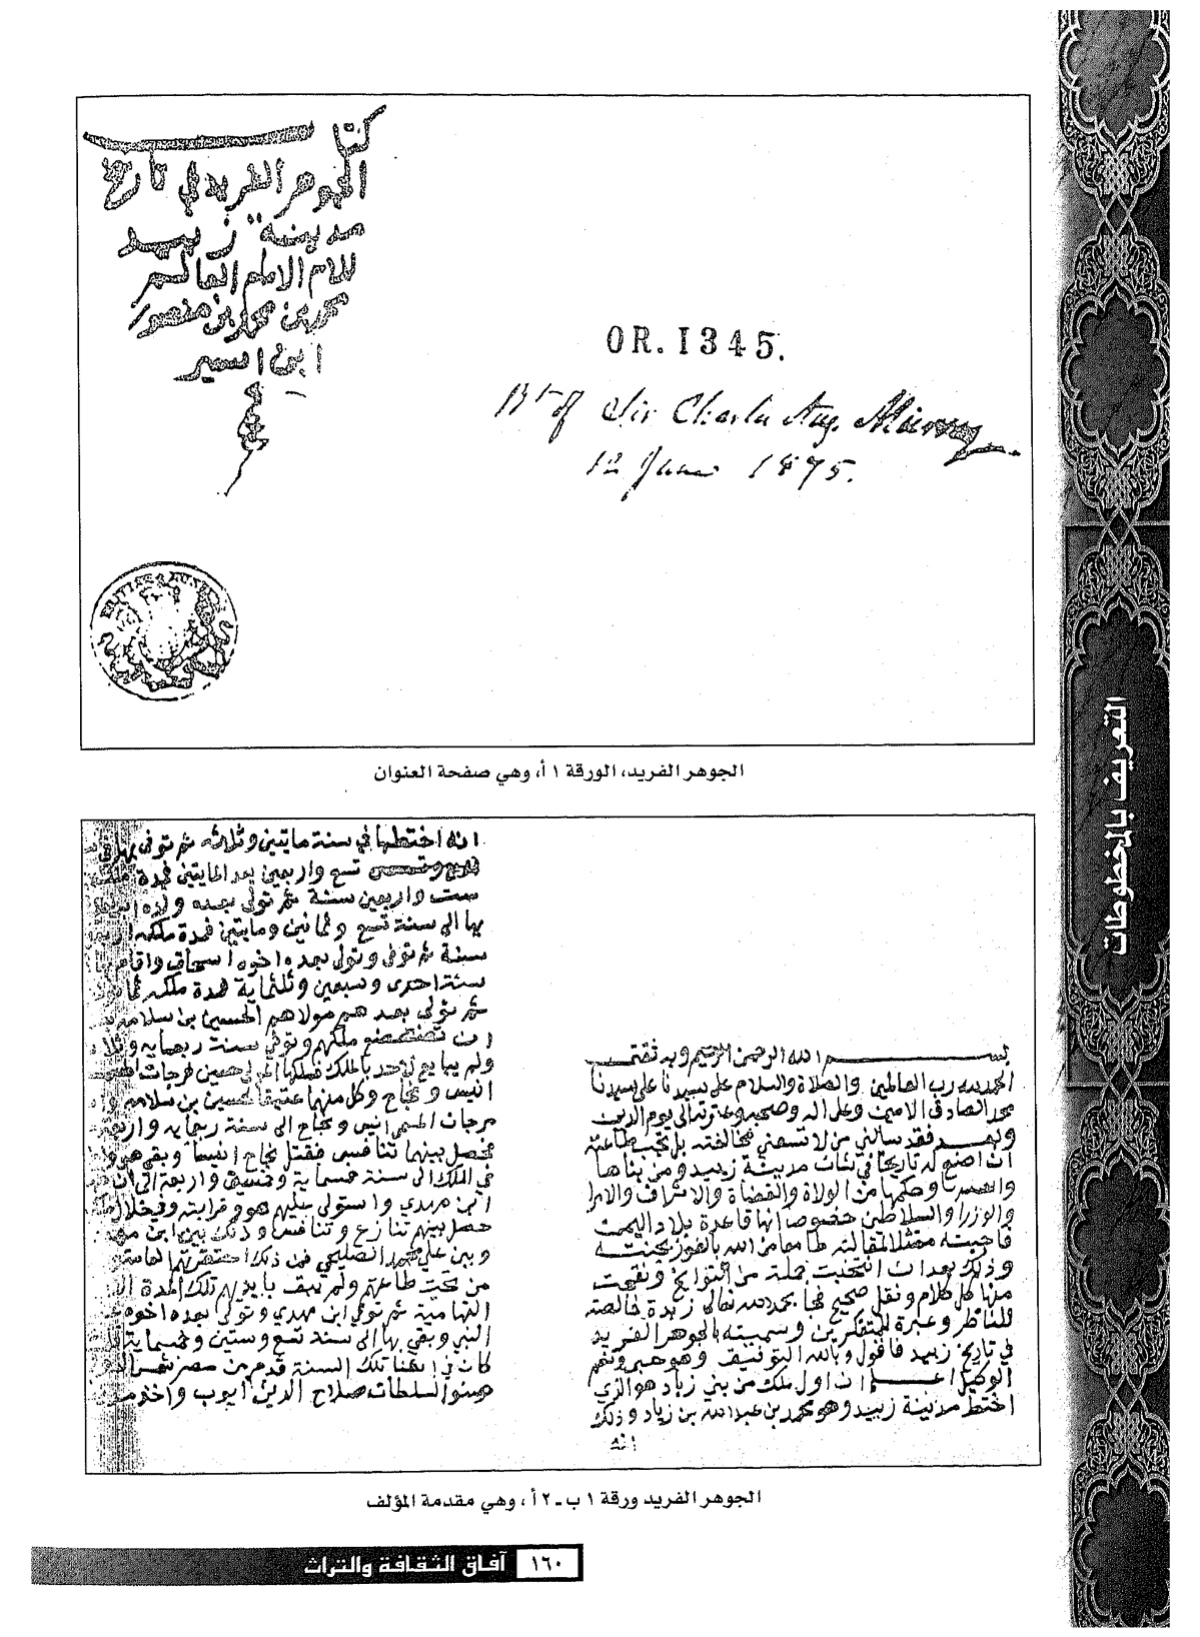 كتاب
الجوهر الفريد في تاريخ
مدينة زبيد
للامام العالم
محمد بن محمد بن منصور
ابن اسير
OR. 1345.
Bt of Sir Charles Aug. Murray
12 June 1875.
BRITISH MUSEUM
الجوهر الفريد، الورقة ١ أ، وهي صفحة العنوان
بسم الله الرحمن الرحيم وبه ثقتي
الحمد لله رب العالمين والصلاة والسلام على سيدنا
محمد الصادق الامين وعلى اله وصحبه وعترته الى يوم الدين
وبعد فقد سالني من لا تسعني مخالفته بل تجب طاعته
ان اصنع له تاريخا في شات مدينة زبيد ومن بناها
وحكمها من الولاة والقضاة والاشراف والامرا
والوزرا والسلاطين خصوصا انها قاعدة بلاد اليمن
فاجبته ممتثلا لمقالته طامعا من الله بالفوز بجنته
وذلك بعد ان انتخبت جملة من التواريخ ونقحت
منها كل كلام ونقل صحيح فجا بحمد الله تعالى زبدة خالصة
للناظر وعبرة للمتفكرين وسميته بالجوهر الفريد
في تاريخ زبيد فاقول وبالله التوفيق وهو حسبي ونعم
الوكيل اعلم ان اول ملك من بني زياد هو الذي
اختط مدينة زبيد وهو محمد بن عبد الله بن زياد وذلك
انه
انه اختطها في سنة مايتين وثلاثه ثم توفي
تسع واربعين بعد المايتين فمدة
ست واربعين سنة ثم تولى بعده ولده
بها الى سنة تسع وثمانين ومايتين فمدة ملكه
سنة ثم توفي وتولى بعده اخوه اسحاق واقام
سنة احدى وسبعين وثلثماية فمدة ملكه
ثم تولى بعدهم مولاهم الحسين بن سلامه
ملكهم وتوفي سنة
ولم يبايع لاحد بالملك
انيس ونجاح وكل منهما عتيقا لحسين بن سلامه
مرجان انيس ونجاح الى سنة
فحصل بينهما تنافس فقتل نجاح انيسا وبقي هو
في الملك الى سنة خمسماية وخمسين واربعة الى ان
ابن مهدي واستولى عليهم هو وقرابته وفي خلال
حصل بينهم تنازع وتنافس وذلك بين ابن
وبين علي محمد الصليحي فمن ذلك
من تحت طاعتهم ولم يبق بايديهم تلك المدة الا
التهامية ثم توفي ابن مهدي وتولى بعده اخوه
النبي وبقي بها الى سنة تسع وستين وخمسماية
كان في تلك السنة قدم من مصر
صنو السلطان صلاح الدين ايوب واخذ
الجوهر الفريد ورقة ١ ب ـ ٢ أ، وهي مقدمة المؤلف
١٦٠ آفاق الثقافة والتراث
التعريف بالمخطوطات